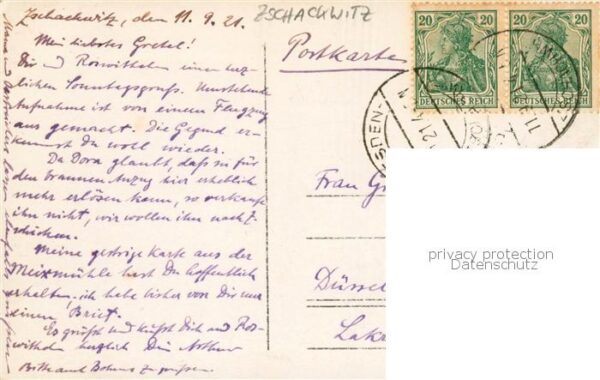 Zschackwitz, den 11.9.21.
ZSCHACKWITZ
Mein liebstes Gretel!
Dir und Roswithelm einen herz-
lichen Sonntagsgruß. Umstehende
Aufnahme ist von einem Flugzeug
aus gemacht. Die Gegend er-
kennst Du wohl wieder.
Da Dora glaubt, daß sie für
den braunen Anzug hier erheblich
mehr erlösen kann, so verkaufe
ihn nicht, wir wollen ihn nach Z.
schicken.
Meine gestrige Karte aus der
Meixmühle hast Du hoffentlich
erhalten, ich habe bisher von Dir nur
einen Brief.
Es grüßt und küßt Dich und Ros-
withelm herzlich Dein Arthur
Bitte auch Bohns zu grüßen.
Mama und
lassen
Postkarte
20 20
20 20
DEUTSCHES REICH
DEUTSCHES REICH
Frau Gr
Düssel
privacy protection
Datenschutz